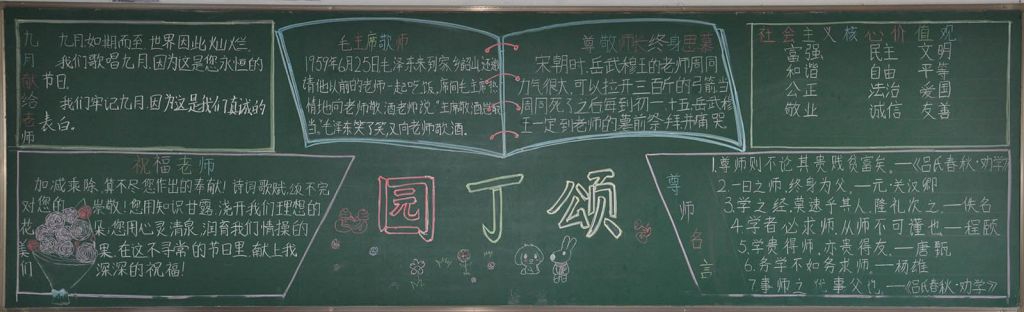 九月献给老师
九月如期而至,世界因此灿烂.
我们歌唱九月,因为这是您永恒的
节日.
我们牢记九月,因为这是我们真诚的
表白。
毛主席敬师
1959年6月25日毛泽东来到家乡韶山,还邀
请他以前的老师一起吃饭,席间毛主席热
情地向老师敬酒老师说:"主席敬酒岂敢
当"毛泽东笑了笑又向老师敬酒.
尊敬师长终身思慕
宋朝时,岳武穆王的老师周同
力气很大,可以拉开三百斤的弓箭,当
周同死了之后每到初一十五,岳武穆
王一定到老师的墓前祭拜并痛哭.
社会主义核心价值观
富强 民主 文明
和谐 自由 平等
公正 法治 爱国
敬业 诚信 友善
祝福老师
加减乘除,算不尽您作出的奉献!诗词歌赋,颂不完
对您的崇敬!您用知识甘露,浇开我们理想的
花朵;您用心灵清泉,润育我们情操的
美果.在这不寻常的节日里,献上我
们深深的祝福!
园丁颂
尊师名言
1.尊师则不论其贵贱贫富矣.—《吕氏春秋·劝学》
2.一日之师,终身为父.—元·关汉卿
3.学之经,莫速乎其人,隆礼次之.—佚名
4.学者必求师,从师不可谨也.—程颐
5.学贵得师,亦贵得友.—唐甄
6.务学不如务求师.—杨雄
7.事师之 犹事父也.—《吕氏春秋·劝学》